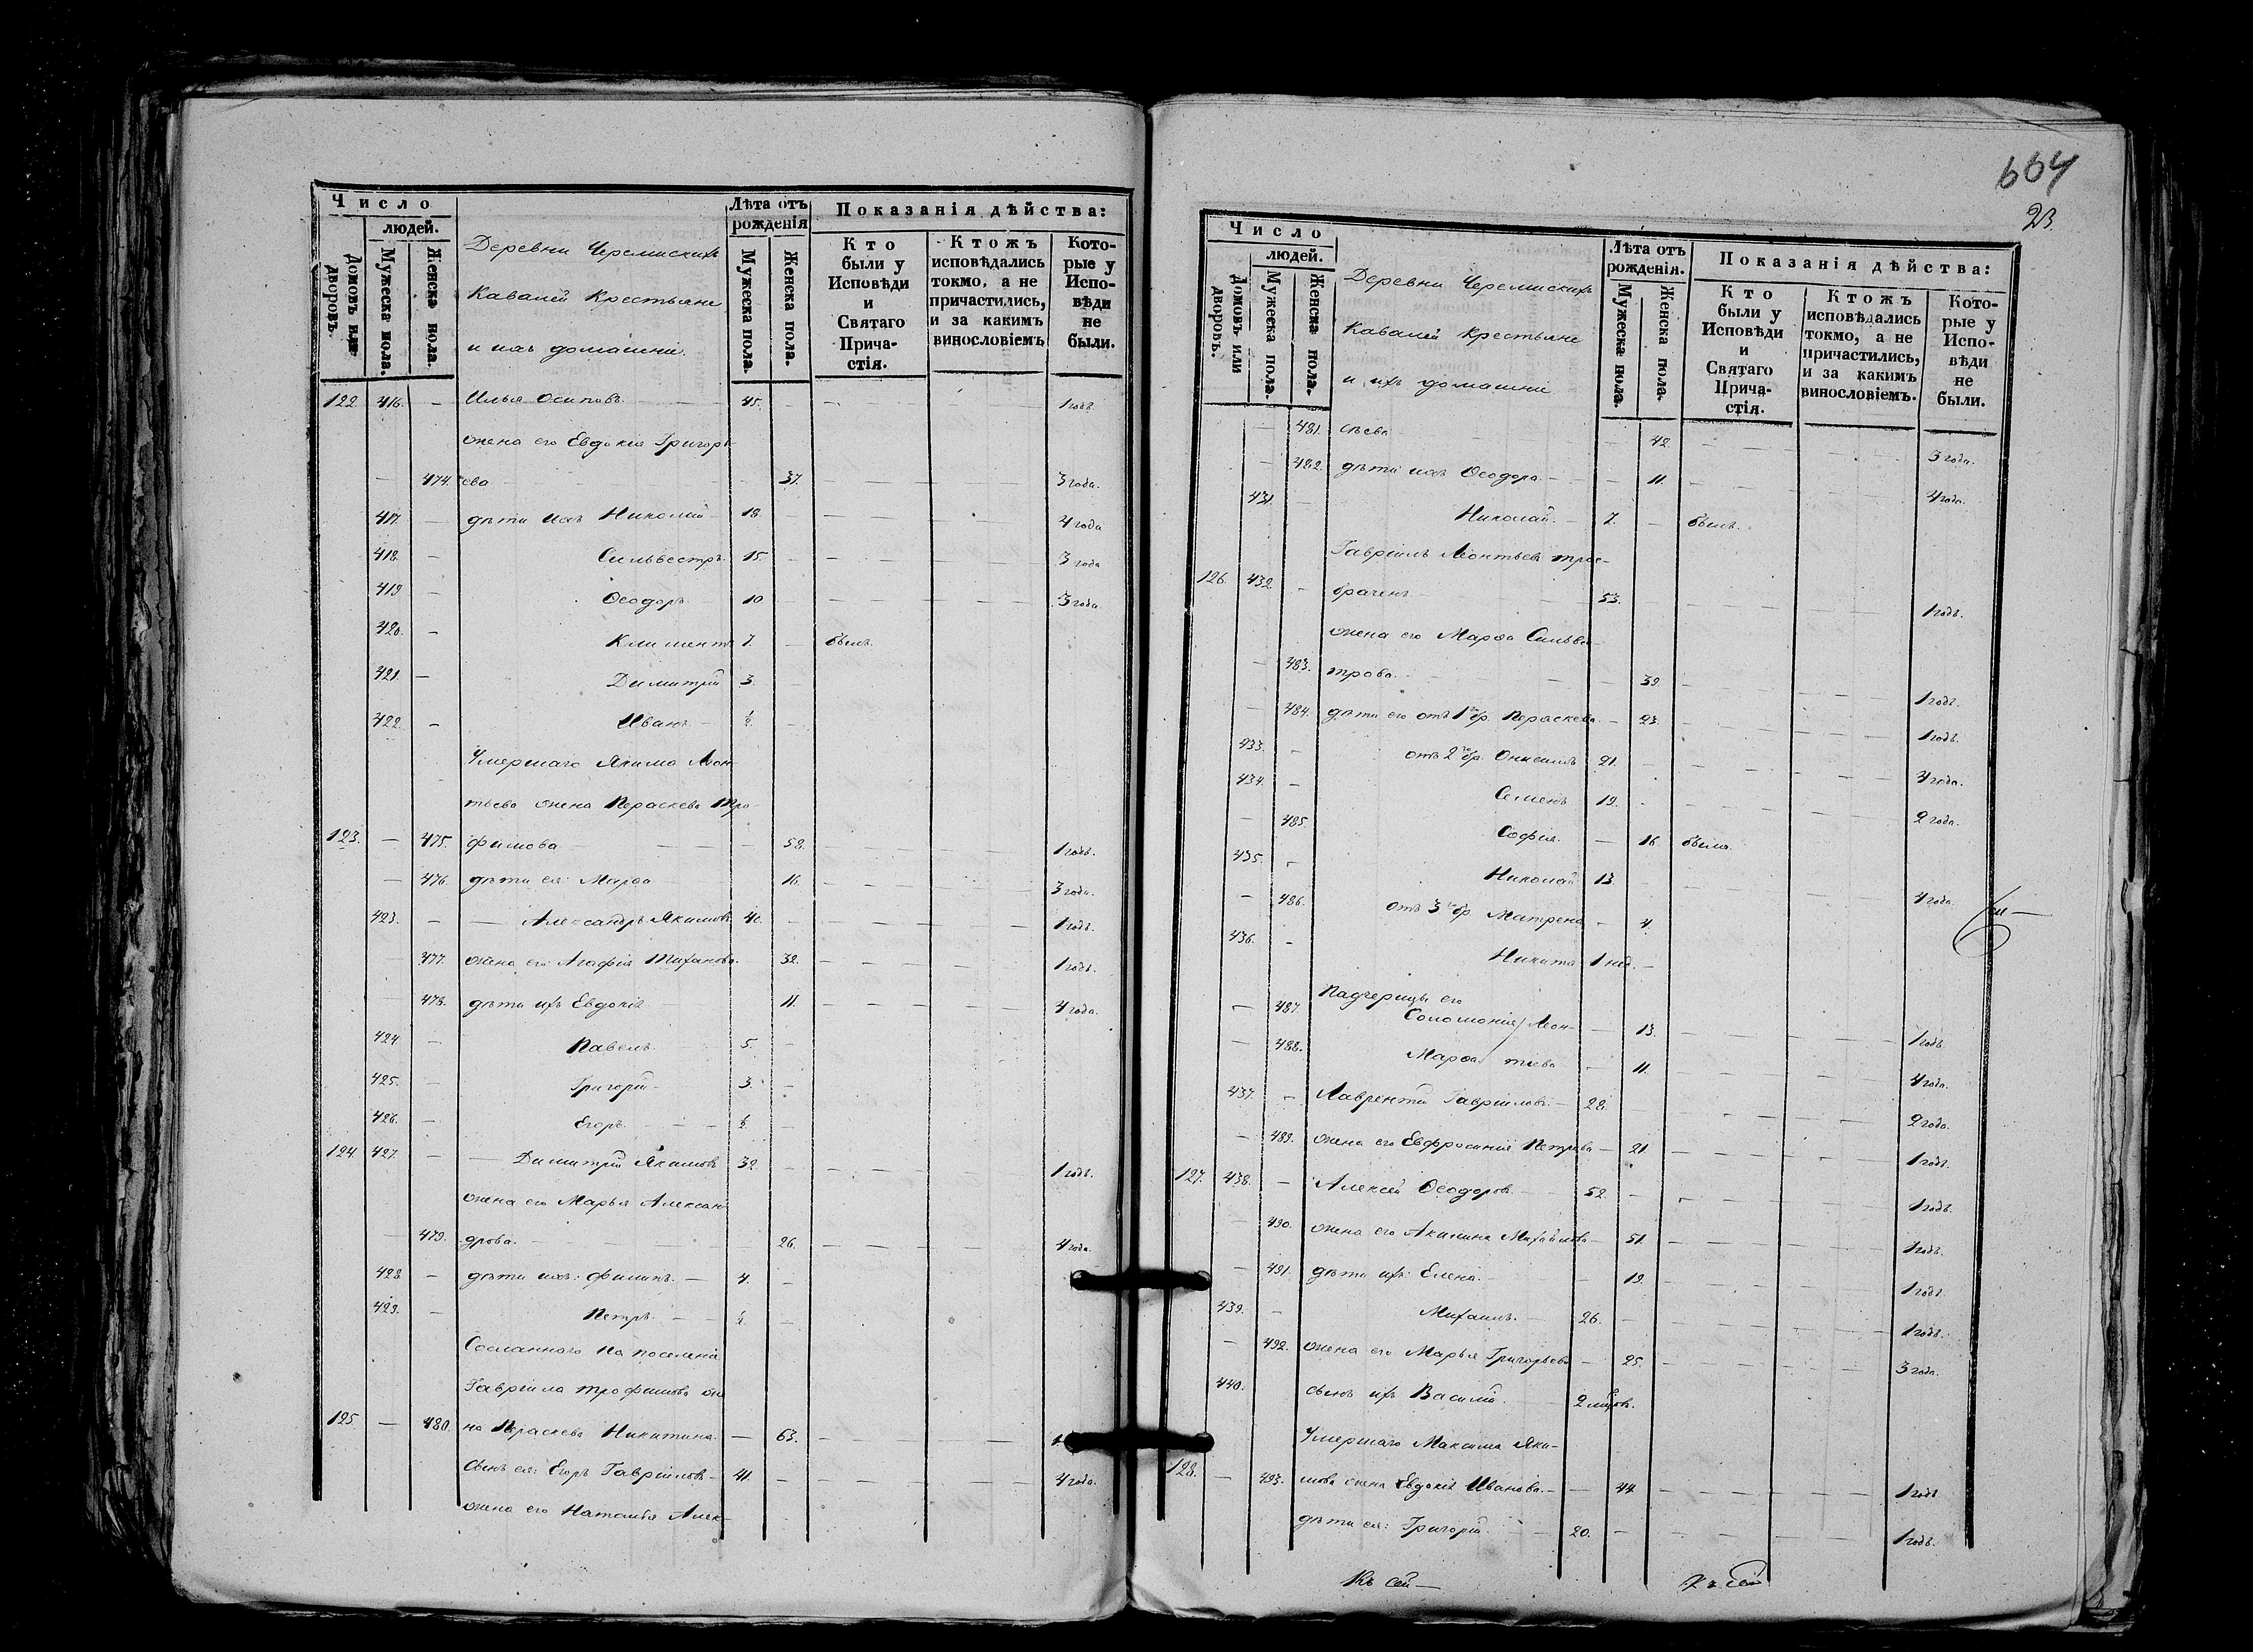 Число
людей.
Домовъ или дворовъ.
Мужеска пола.
Женска пола.
Деревни Черемискихъ
Кавалей Крестьяне
и ихъ домашніе.
Лѣта отъ рожденія
Мужеска пола.
Женска пола.
Показанія дѣйства:
Кто были у Исповѣди и Святаго Причастія.
Ктожъ исповѣдались токмо, а не причастились, и за какимъ винословіемъ
Которые у Исповѣди не были.
122. 416. — Илья Осиповъ 45. — 1 годъ.
жена его Евдокія Григорь-
— 474. ева 37. 3 года.
417. — дѣти ихъ Николай 18. 4 года
418. — Сильвестръ 15. 3 года
419 — Ѳеодоръ 10. 3 года
420. — Климентъ 7. — былъ.
421. — Димитрій 3.
422. — Иванъ ½.
Умершаго Якима Леон-
тьева жена Параскева Тро-
123. — 475. фимова 58. 1 годъ.
— 476. дѣти ея: Марѳа 16. 3 года.
423. — Александръ Якимовъ 40. 1 годъ.
477. жена его Агафія Тиханова 32. 1 годъ.
478. дѣти ихъ Евдокія 11. 4 года.
424. — Павелъ 5.
425. — Григорій 3.
426. — Егоръ ½.
124 427. — Димитрій Якимовъ 32. 1 годъ.
жена его Марья Алексан-
479. дрова. 26. 4 года.
428. — дѣти ихъ: Филипъ. 4.
429. — Петръ ½.
Сосланнаго на поселеніе
Гавріила Трофимова же-
125. — 480. на Параскева Никитина — 63. 1
сынъ ея: Егоръ Гавріиловъ 41. 4 года.
жена его Наталья Алек-
604
23.
Число
людей.
Домовъ или дворовъ.
Мужеска пола.
Женска пола.
Деревни Черемискихъ
Кавалей Крестьяне
и ихъ домашніе
Лѣта отъ рожденія.
Мужеска пола.
Женска пола.
Показанія дѣйства:
Кто были у Исповѣди и Святаго Причастія.
Ктожъ исповѣдались токмо, а не причастились, и за какимъ винословіемъ.
Которые у Исповѣди не были.
— 481. сѣева 42. 3 года.
— 482. дѣти ихъ Ѳеодора 11. 4 года.
431. — Николай. 7. — былъ.
Гавріилъ Леонтьевъ трое-
126. 432 — браченъ 53. 1 годъ.
жена его Марѳа Сильвес-
— 483. трова. 39. 1 годъ.
— 484. дѣти его отъ 1го бр. Параскева 23. 1 годъ.
433. — отъ 2го бр. Онисимъ 21. 4 года.
434. — Семенъ 19. 2 года.
— 485. София. — 16 была.
435. — Николай 13. 4 года.
— 486. отъ 3го бр. Матрена — 4.
436. — Никита 1 нед. —
Падчерицы его
— 487. Соломонія Леон- — 13. 1 годъ
— 488. Марѳа тьева — 11. 4 года.
437. — Лаврентій Гавріиловъ — 28. 2 года.
— 489. жена его Евфросинія Петрова — 21. 1 годъ.
127. 438. — Алексей Ѳеодоровъ 52. 1 годъ.
490. жена его Акилина Михайлова 51. 1 годъ.
— 491. дѣти ихъ: Елена. 19. 1 годъ.
439. — Михаилъ. 26. 1 годъ.
— 492. жена его Марья Григорьева — 25. 3 года.
440. сынъ ихъ Василій 2 мѣсяц.
Умершаго Максима Яки-
128. — 493. мова жена Евдокія Иванова. — 44. 1 годъ
дѣти ея: Григорій 20. 1 годъ.
Къ сей —